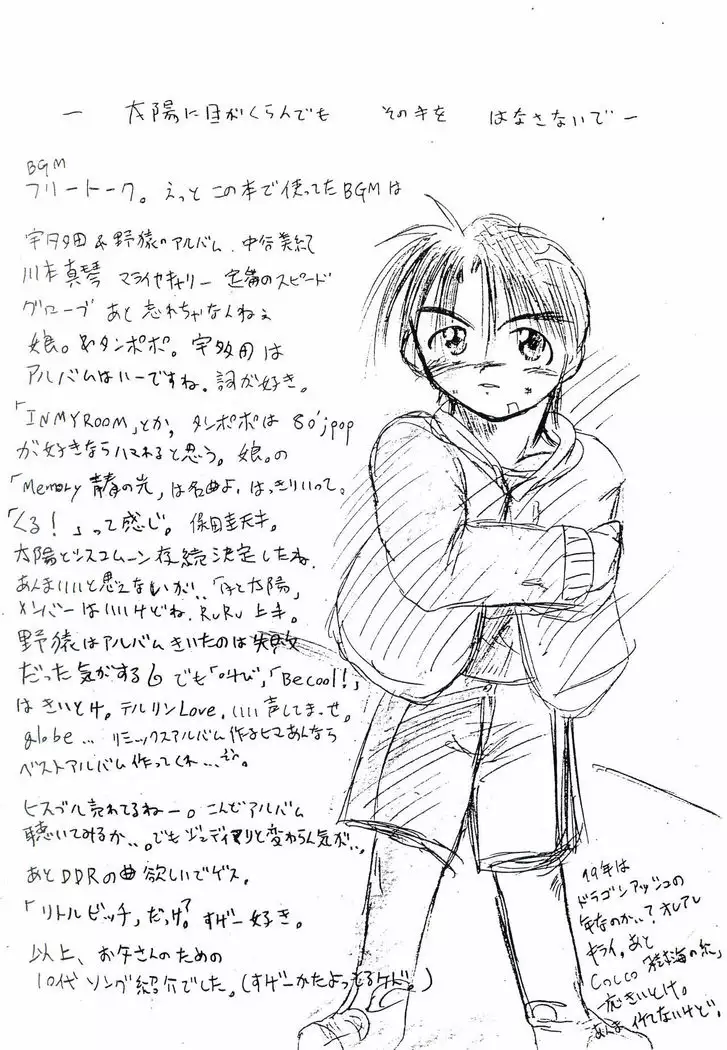 ー 太陽に目がくらんでも その手を はなさないでー
BGM
フリートーク。えっと この本で使ってたBGMは
宇多田&野猿のアルバム、中谷美紀
川本真琴 マライヤキャリー 定番のスピード
グローブ あと 忘れちゃなんねぇ
娘。&タンポポ。宇多田は
アルバムはいーですね。詞が好き。
「INMYROOM」とか、タンポポは80'jpop
が好きならハマれると思う。娘。の
「Memory青春の光」は名曲よ、はっきりいって。
「くる!」って感じ。保田圭天才。
太陽とシスコムーン存続決定したね
あんまいいと思えないが、「月と太陽」
メンバーはいいけどね。RuRu上手。
野猿はアルバムきいたのは失敗
だった気がする でも「叫び」、「Be cool!」
はきいとけ。テルリンLove、いい声してまっせ。
globe… リミックスアルバム作るヒマあんなら
ベストアルバム作ってくれ…
ヒスブル売れてるねー。こんどアルバム
聴いてみるか、、。でもジュディマリと変わらん気が、、
あとDDRの曲欲しいでゲス。
「リトルビッチ」だっけ?すげー好き。
以上、お父さんのための
10代ソング紹介でした。(すげーかたよってるケド。)
19年は
ドラゴンアッシュの
年なのか、、?オレアレ
キライ。あと
Cocco「樹海の糸」
一応きいとけ。
あんま 似てないけど。